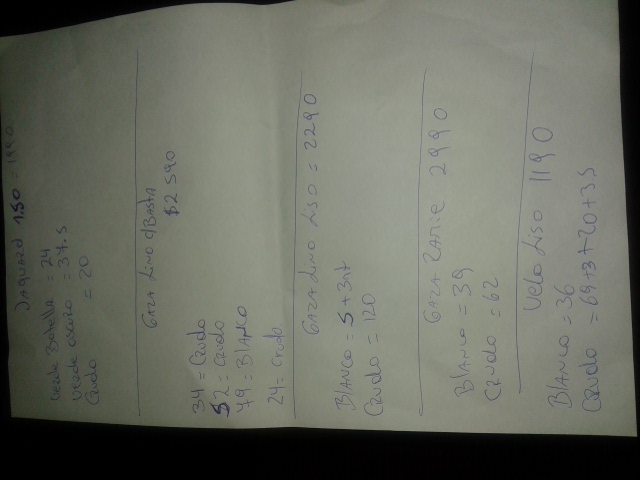 JAQUARD 1.50 = 1990
Verde Botella = 24
Verde oscuro = 37.5
Crudo = 20
GAZA LINO c/BASTA
$2 590
34 = Crudo
52 = Crudo
79 = BLANCO
24 = crudo.
GAZA LINO LISO = 2290
BLANCO = 5 + 3mt
CRUDO = 120
GAZA RAMIE 2990
BLANCO = 39
CRUDO = 62
Velo LISO 1190
BLANCO = 36
CRUDO = 69+3+20+3.5